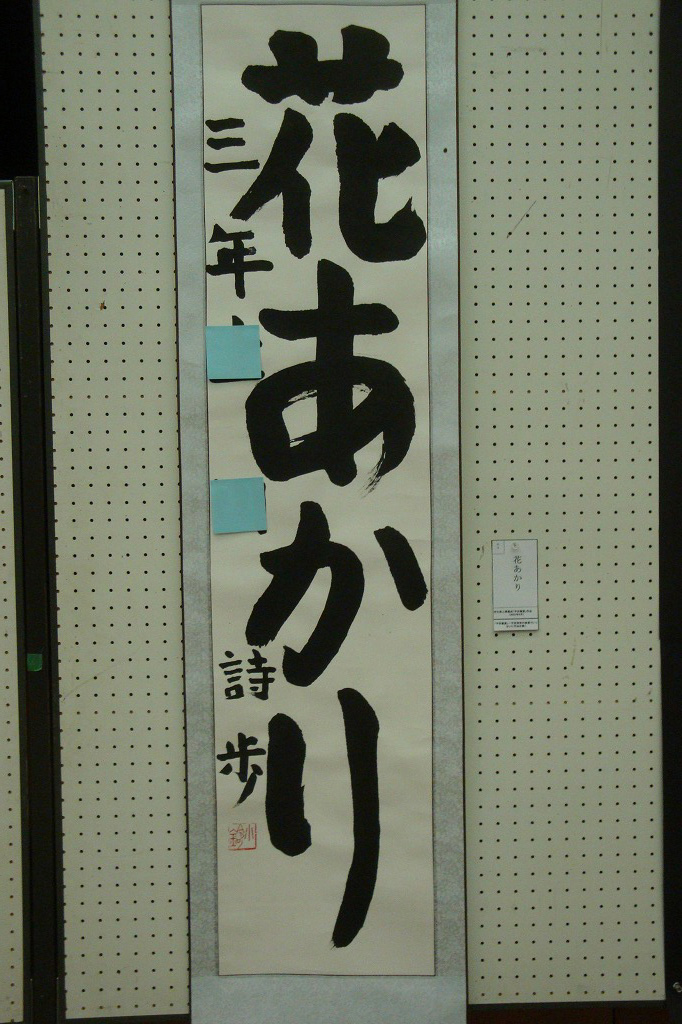 花あかり
三年
詩歩
花あかり